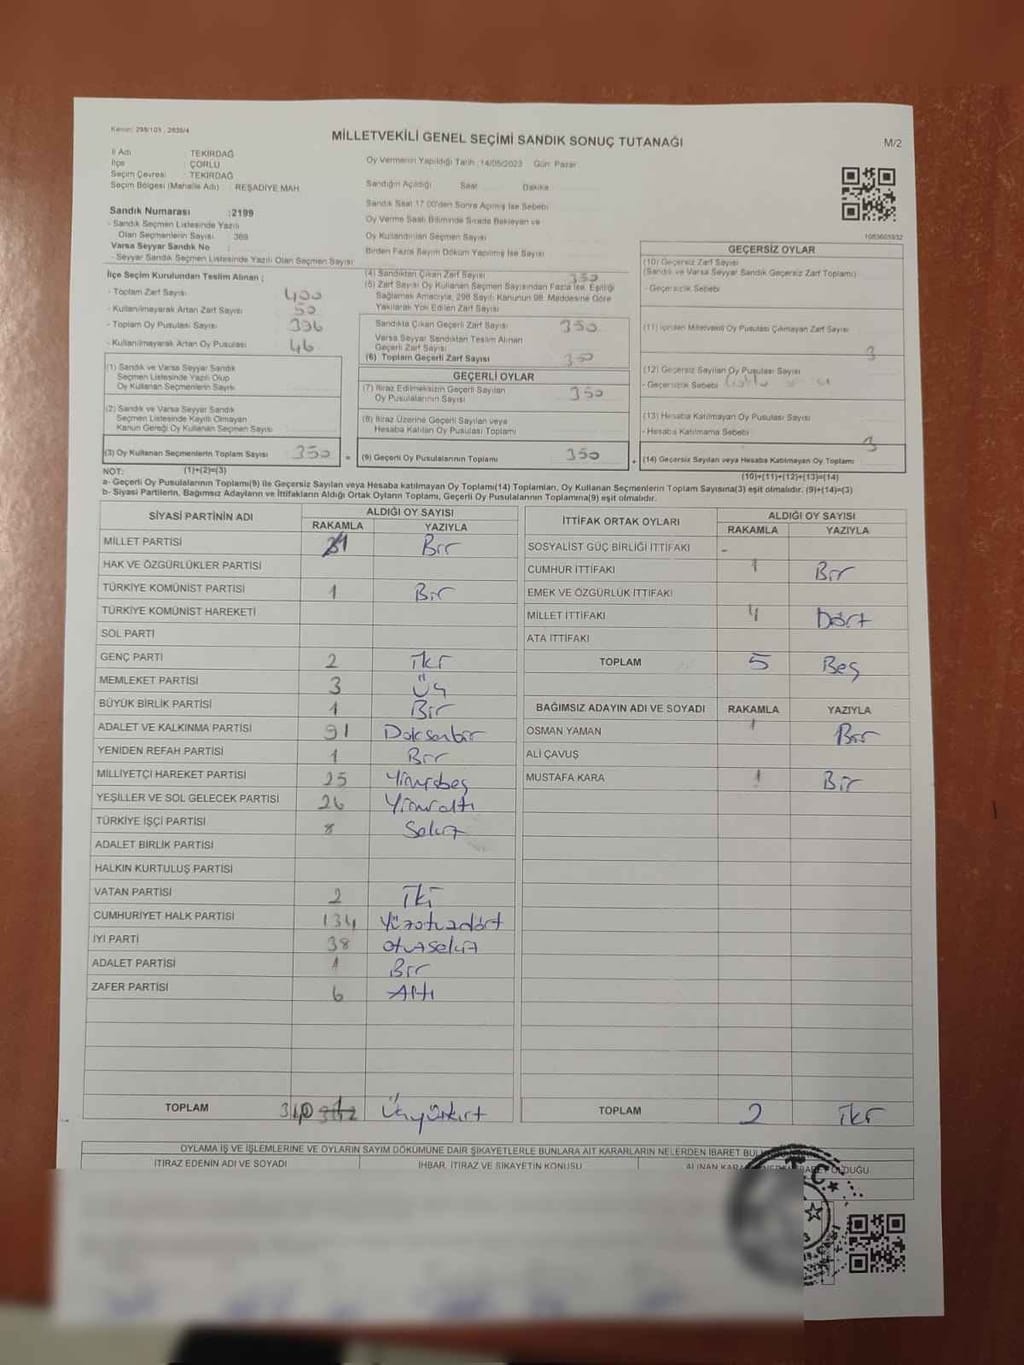 Kanun: 298/105 , 2839/4
MİLLETVEKİLİ GENEL SEÇİMİ SANDIK SONUÇ TUTANAĞI
M/2
İl Adı : TEKİRDAĞ
İlçe : ÇORLU
Seçim Çevresi : TEKİRDAĞ
Seçim Bölgesi (Mahalle Adı) : REŞADİYE MAH.
Sandık Numarası : 2199
- Sandık Seçmen Listesinde Yazılı
Olan Seçmenlerin Sayısı : 369
Varsa Seyyar Sandık No :
- Seyyar Sandık Seçmen Listesinde Yazılı Olan Seçmen Sayısı
Oy Vermenin Yapıldığı Tarih : 14/05/2023 Gün: Pazar
Sandığın Açıldığı Saat Dakika
Sandık Saat 17.00'den Sonra Açılmış İse Sebebi
Oy Verme Saati Bitiminde Sırada Bekleyen ve
Oy Kullandırılan Seçmen Sayısı
Birden Fazla Sayım Döküm Yapılmış İse Sayısı
İlçe Seçim Kurulundan Teslim Alınan ;
- Toplam Zarf Sayısı 400
- Kullanılmayarak Artan Zarf Sayısı 50
- Toplam Oy Pusulası Sayısı 396
- Kullanılmayarak Artan Oy Pusulası 46
(1) Sandık ve Varsa Seyyar Sandık
Seçmen Listesinde Yazılı Olup
Oy Kullanan Seçmenlerin Sayısı
(2) Sandık ve Varsa Seyyar Sandık
Seçmen Listesinde Kayıtlı Olmayan
Kanun Gereği Oy Kullanan Seçmen Sayısı
(3) Oy Kullanan Seçmenlerin Toplam Sayısı 350
(4) Sandıktan Çıkan Zarf Sayısı 350
(5) Zarf Sayısı Oy Kullanan Seçmen Sayısından Fazla İse, Eşitliği
Sağlamak Amacıyla, 298 Sayılı Kanunun 98. Maddesine Göre
Yakılarak Yok Edilen Zarf Sayısı
Sandıkta Çıkan Geçerli Zarf Sayısı 350
Varsa Seyyar Sandıktan Teslim Alınan
Geçerli Zarf Sayısı
(6) Toplam Geçerli Zarf Sayısı 350
GEÇERLİ OYLAR
(7) İtiraz Edilmeksizin Geçerli Sayılan
Oy Pusulalarının Sayısı 350
(8) İtiraz Üzerine Geçerli Sayılan veya
Hesaba Katılan Oy Pusulası Toplamı
= (9) Geçerli Oy Pusulalarının Toplamı 350
1083605932
GEÇERSİZ OYLAR
(10) Geçersiz Zarf Sayısı
(Sandık ve Varsa Seyyar Sandık Geçersiz Zarf Toplamı)
- Geçersizlik Sebebi
(11) İçinden Milletvekili Oy Pusulası Çıkmayan Zarf Sayısı
3
(12) Geçersiz Sayılan Oy Pusulası Sayısı
- Geçersizlik Sebebi
(13) Hesaba Katılmayan Oy Pusulası Sayısı
- Hesaba Katılmama Sebebi
3
+ (14) Geçersiz Sayılan veya Hesaba Katılmayan Oy Toplamı
NOT: (1)+(2)=(3) (10)+(11)+(12)+(13)=(14)
a- Geçerli Oy Pusulalarının Toplamı(9) ile Geçersiz Sayılan veya Hesaba katılmayan Oy Toplamı(14) Toplamları, Oy Kullanan Seçmenlerin Toplam Sayısına(3) eşit olmalıdır. (9)+(14)=(3)
b- Siyasi Partilerin, Bağımsız Adayların ve İttifakların Aldığı Ortak Oyların Toplamı, Geçerli Oy Pusulalarının Toplamına(9) eşit olmalıdır.
SİYASİ PARTİNİN ADI ALDIĞI OY SAYISI
RAKAMLA YAZIYLA
MİLLET PARTİSİ 1 Bir
HAK VE ÖZGÜRLÜKLER PARTİSİ
TÜRKİYE KOMÜNİST PARTİSİ 1 Bir
TÜRKİYE KOMÜNİST HAREKETİ
SOL PARTİ
GENÇ PARTİ 2 İki
MEMLEKET PARTİSİ 3 Üç
BÜYÜK BİRLİK PARTİSİ 1 Bir
ADALET VE KALKINMA PARTİSİ 91 Doksanbir
YENİDEN REFAH PARTİSİ 1 Bir
MİLLİYETÇİ HAREKET PARTİSİ 25 Yirmibeş
YEŞİLLER VE SOL GELECEK PARTİSİ 26 Yirmialtı
TÜRKİYE İŞÇİ PARTİSİ 8 Sekiz
ADALET BİRLİK PARTİSİ
HALKIN KURTULUŞ PARTİSİ
VATAN PARTİSİ 2 İki
CUMHURİYET HALK PARTİSİ 134 Yüzotuzdört
İYİ PARTİ 38 otuzsekiz
ADALET PARTİSİ 1 Bir
ZAFER PARTİSİ 6 Altı
TOPLAM 340
İTTİFAK ORTAK OYLARI ALDIĞI OY SAYISI
RAKAMLA YAZIYLA
SOSYALİST GÜÇ BİRLİĞİ İTTİFAKI -
CUMHUR İTTİFAKI 1 Bir
EMEK VE ÖZGÜRLÜK İTTİFAKI
MİLLET İTTİFAKI 4 Dört
ATA İTTİFAKI
TOPLAM 5 Beş
BAĞIMSIZ ADAYIN ADI VE SOYADI RAKAMLA YAZIYLA
OSMAN YAMAN 1 Bir
ALİ ÇAVUŞ
MUSTAFA KARA 1 Bir
TOPLAM 2 İki
OYLAMA İŞ VE İŞLEMLERİNE VE OYLARIN SAYIM DÖKÜMÜNE DAİR ŞİKAYETLERLE BUNLARA AİT KARARLARIN NELERDEN İBARET
İTİRAZ EDENİN ADI VE SOYADI İHBAR, İTİRAZ VE ŞİKAYETİN KONUSU
T.C.